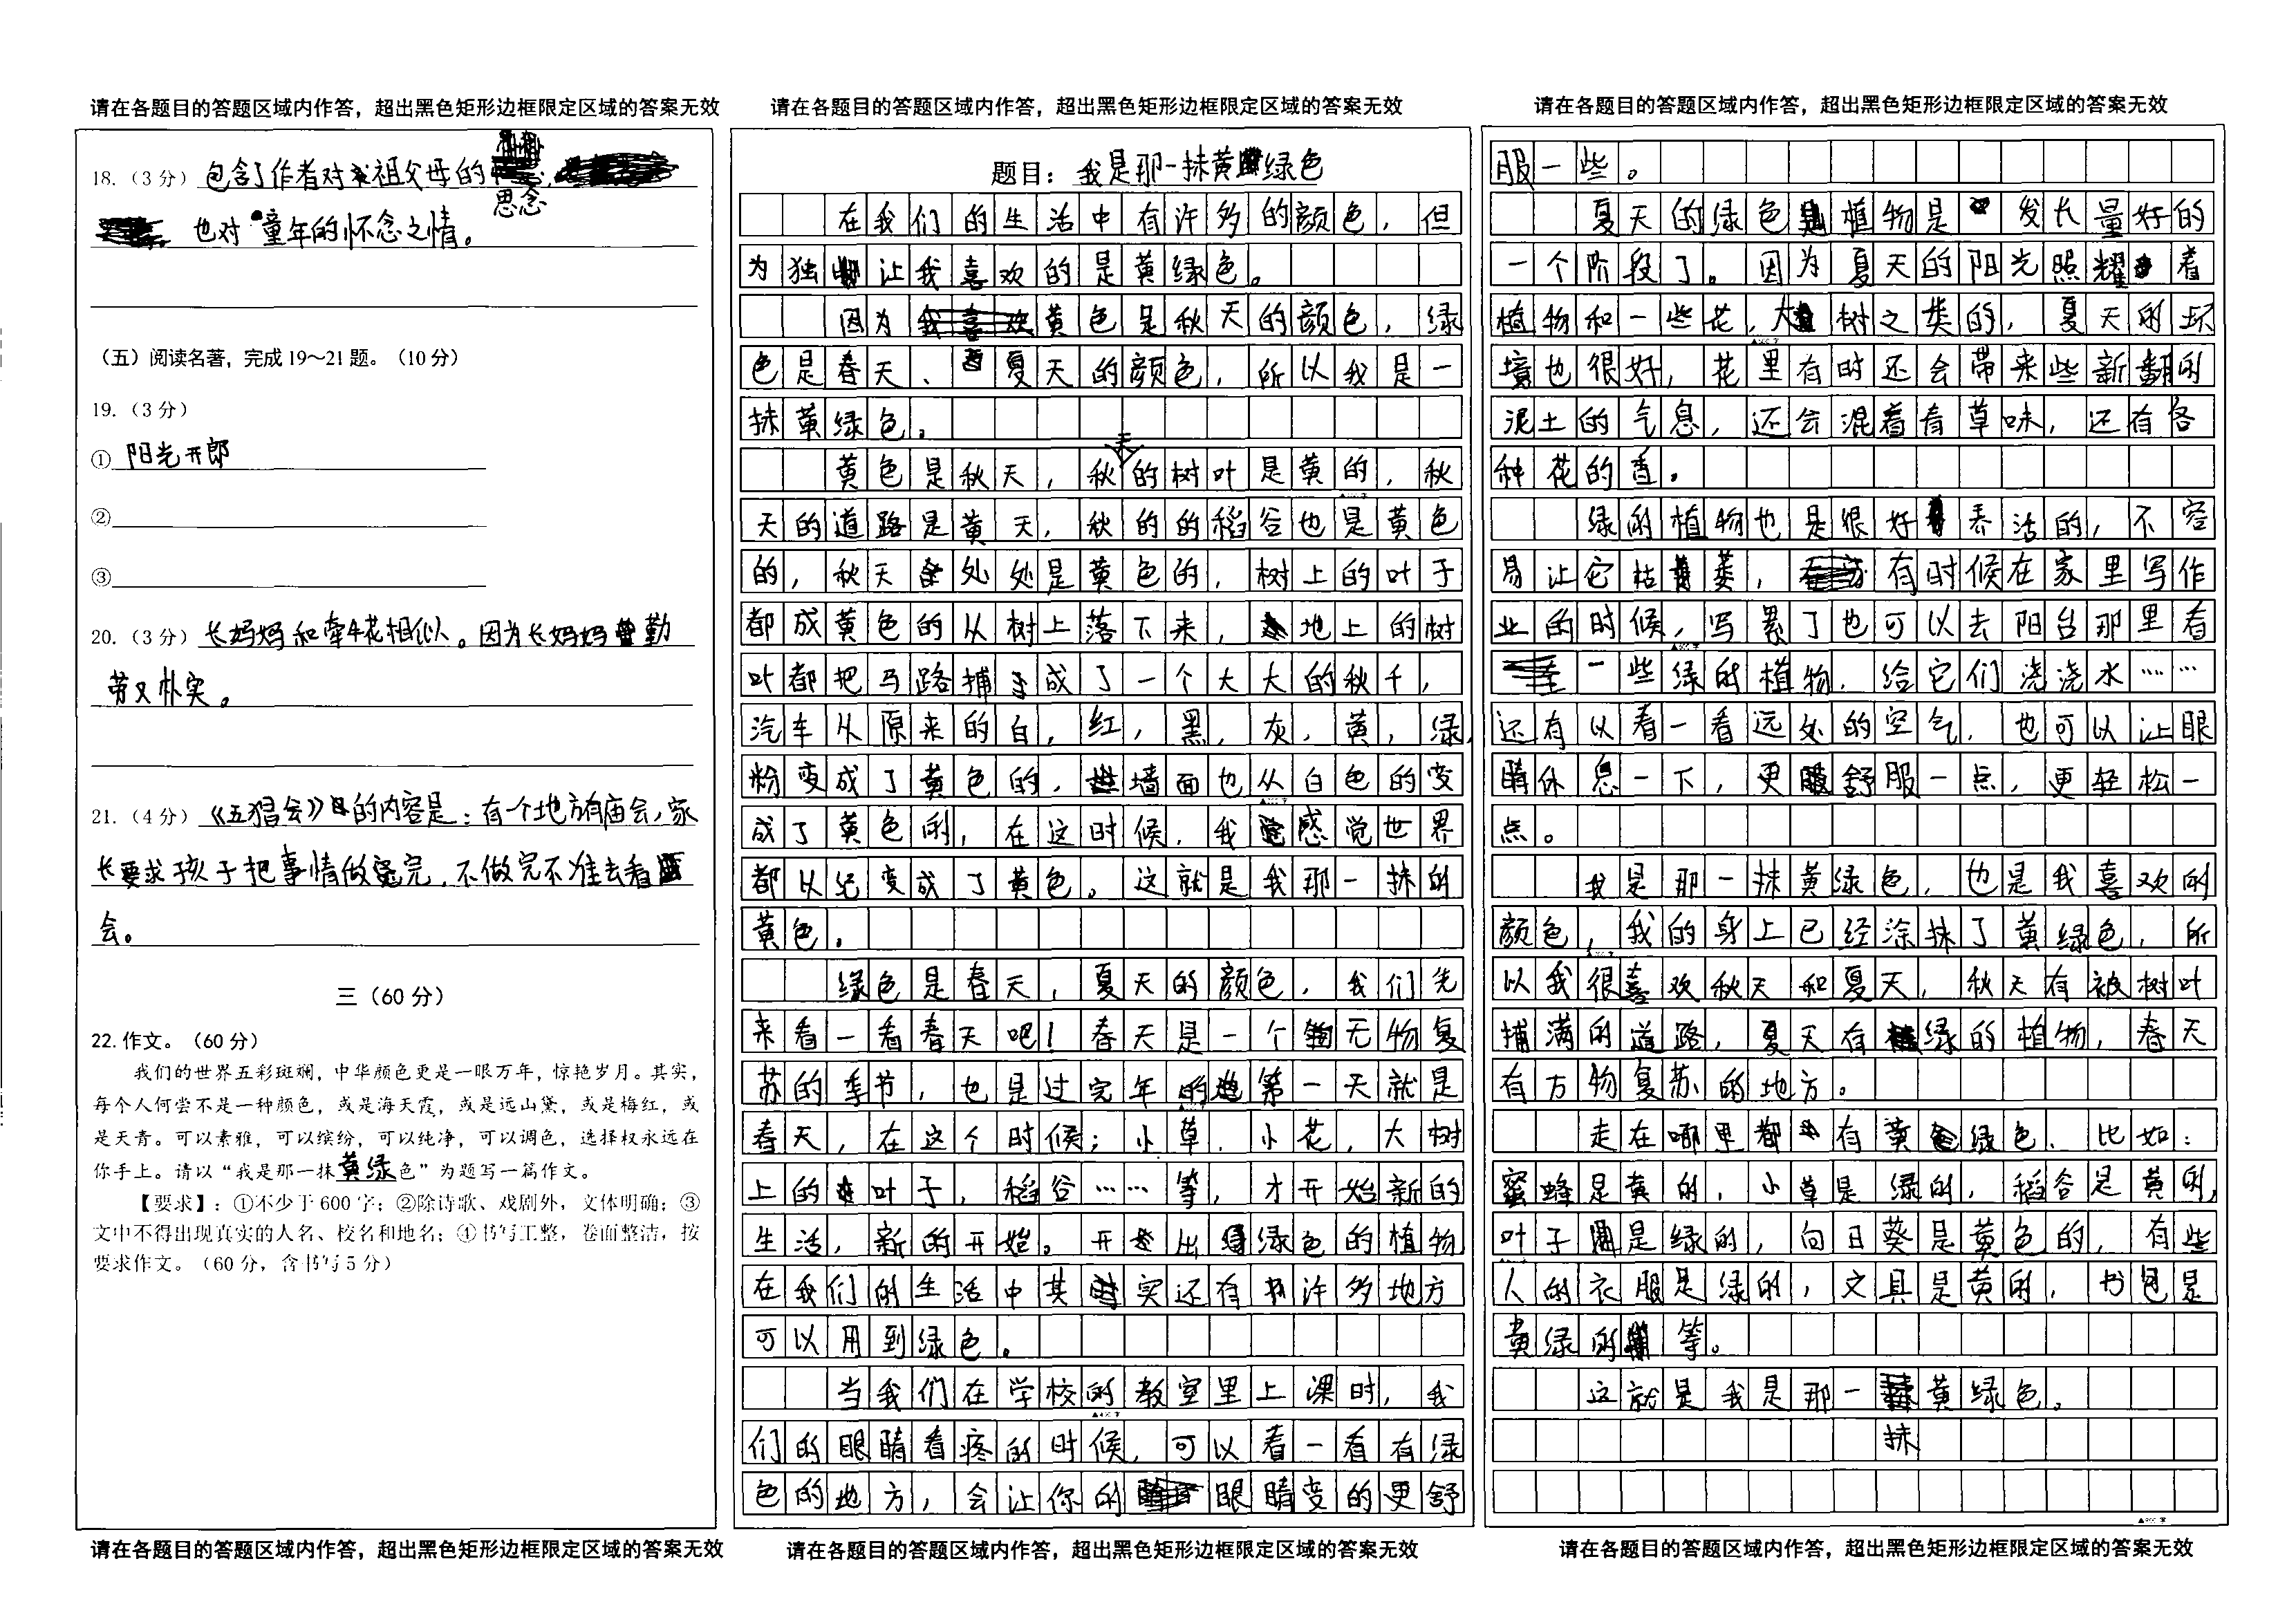 请在各题目的答题区域内作答，超出黑色矩形边框限定区域的答案无效
18.（3分）包含了作者对祖父母的思念，
也对童年的怀念之情。
（五）阅读名著，完成19～21题。（10分）
19.（3分）
①阳光开郎
②
③
20.（3分）长妈妈和牵牛花相似。因为长妈妈勤
劳又朴实。
21.（4分）《五猖会》的内容是：有个地方有庙会，家
长要求孩子把事情做完，不做完不准去看
会。
三（60分）
22.作文。（60分）
我们的世界五彩斑斓，中华颜色更是一眼万年，惊艳岁月。其实，
每个人何尝不是一种颜色，或是海天霞，或是远山黛，或是梅红，或
是天青。可以素雅，可以缤纷，可以纯净，可以调色，选择权永远在
你手上。请以“我是那一抹黄绿色”为题写一篇作文。
【要求】：①不少于600字；②除诗歌、戏剧外，文体明确；③
文中不得出现真实的人名、校名和地名；④书写工整，卷面整洁，按
要求作文。（60分，含书写5分）
请在各题目的答题区域内作答，超出黑色矩形边框限定区域的答案无效
请在各题目的答题区域内作答，超出黑色矩形边框限定区域的答案无效
题目：我是那一抹黄绿色
在我们的生活中有许多的颜色，但
为独让我喜欢的是黄绿色。
因为黄色是秋天的颜色，绿
色是春天、夏天的颜色，所以我是一
抹黄绿色。
黄色是秋天，秋天的树叶是黄的，秋
天的道路是黄天，秋的的稻谷也是黄色
的，秋天处处是黄色的，树上的叶子
都成黄色的从树上落下来，地上的树
叶都把马路捕成了一个大大的秋千，
汽车从原来的白，红，黑，灰，黄，绿，
粉变成了黄色的，墙面也从白色的变
成了黄色的，在这时候，我感觉世界
都以纪变成了黄色。这就是我那一抹的
黄色。
绿色是春天，夏天的颜色，我们先
来看一看春天吧！春天是一个无物复
苏的季节，也是过完年的第一天就是
春天，在这个时候；小草，小花，大树
上的叶子，稻谷……等，才开始新的
生活，新的开始。开出绿色的植物
在我们的生活中其实还有许多地方
可以用到绿色。
当我们在学校的教室里上课时，我
们的眼睛看疼的时候，可以看一看有绿
色的地方，会让你的眼睛变的更舒
请在各题目的答题区域内作答，超出黑色矩形边框限定区域的答案无效
请在各题目的答题区域内作答，超出黑色矩形边框限定区域的答案无效
服一些。
夏天的绿色植物是发长量好的
一个阶段了。因为夏天的阳光照耀着
植物和一些花，大树之类的，夏天的环
境也很好，花里有时还会带来些新翻的
泥土的气息，还会混着青草味，还有各
种花的香。
绿的植物也是很好养活的，不容
易让它枯萎，有时候在家里写作
业的时候，写累了也可以去阳台那里看
一些绿的植物，给它们浇浇水……
还有以看一看远处的空气，也可以让眼
睛休息一下，更舒服一点，更轻松一
点。
我是那一抹黄绿色，也是我喜欢的
颜色，我的身上已经涂抹了黄绿色，所
以我很喜欢秋天和夏天，秋天有被树叶
捕满的道路，夏天有绿的植物，春天
有万物复苏的地方。
走在哪里都有黄绿色，比如：
蜜蜂是黄的，小草是绿的，稻谷是黄的，
叶子是绿的，向日葵是黄色的，有些
人的衣服是绿的，文具是黄的，书包是
黄绿的等。
这就是我是那一抹黄绿色。
▲900字
请在各题目的答题区域内作答，超出黑色矩形边框限定区域的答案无效